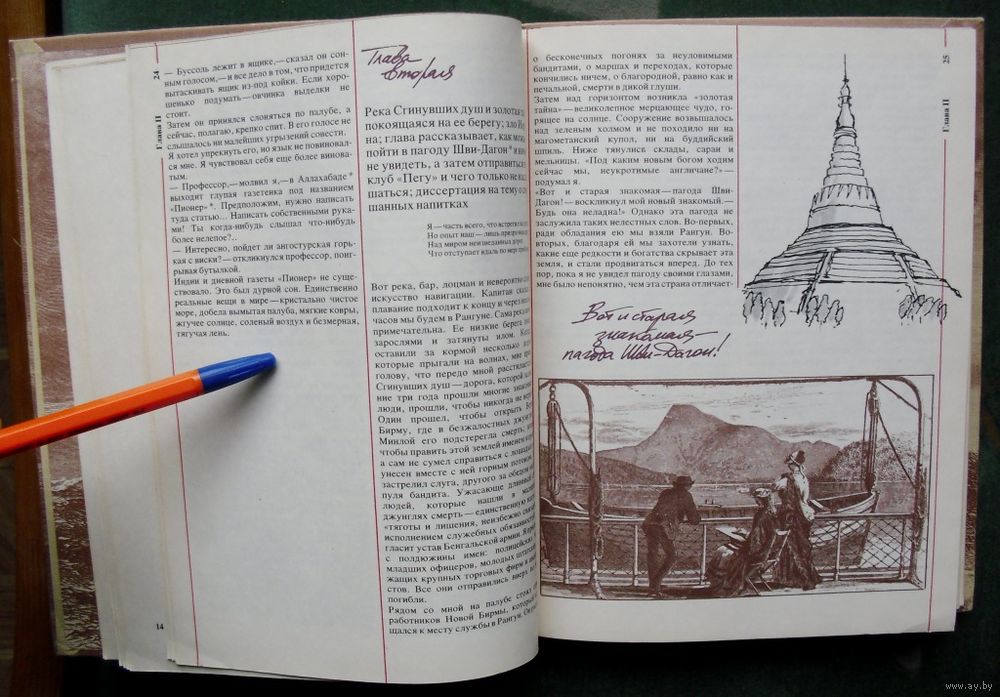 24
Глава II
— Буссоль лежит в ящике,— сказал он сон-
ным голосом,— и все дело в том, что придется
вытаскивать ящик из-под койки. Если хоро-
шенько подумать — овчинка выделки не
стоит.
Затем он принялся слоняться по палубе, а
сейчас, полагаю, крепко спит. В его голосе не
слышались ни малейших угрызений совести.
Я хотел упрекнуть его, но язык не повиновал-
ся мне. Я чувствовал себя еще более винова-
тым.
— Профессор,— молвил я,— в Аллахабаде*
выходит глупая газетенка под названием
«Пионер»*. Предположим, нужно написать
туда статью… Написать собственными рука-
ми! Ты когда-нибудь слышал что-нибудь
более нелепое?..
— Интересно, пойдет ли ангостурская горь-
кая с виски? — откликнулся профессор, поиг-
рывая бутылкой.
Индии и дневной газеты «Пионер» не суще-
ствовало. Это был дурной сон. Единственно
реальные вещи в мире — кристально чистое
море, добела вымытая палуба, мягкие ковры,
жгучее солнце, соленый воздух и безмерная,
тягучая лень.
14
Глава
вторая
Река Сгинувших душ и золотая
покоящаяся на ее берегу; зло
на; глава рассказывает, как
пойти в пагоду Шви-Дагон* и
не увидеть, а затем отправиться
клуб «Пегу» и чего только не
шаться; диссертация на тему о
шанных напитках
Я — часть всего, что встретил
Но опыт наш — лишь
Над миром неизведанных дорог
Что отступает вдаль по мере
Вот река, бар, лоцман и невероятное
искусство навигации. Капитан сказал
плавание подходит к концу и через
часов мы будем в Рангуне. Сама река
примечательна. Ее низкие берега
зарослями и затянуты илом. Когда
оставили за кормой несколько
которые прыгали на волнах, мне
голову, что передо мной расстилается
Сгинувших душ — дорога, которой за
ние три года прошли многие знакомые
люди, прошли, чтобы никогда не
Один прошел, чтобы открыть
Бирму, где в безжалостных джунглях
Минлой его подстерегла смерть;
чтобы править этой землей именем
а сам не сумел справиться с лошадью
унесен вместе с ней горным потоком
застрелил слуга, другого за обедом
пуля бандита. Ужасающе длинный
людей, которые нашли в
джунглях смерть — единственную
«тяготы и лишения, неизбежно
исполнением служебных обязанностей
гласит устав Бенгальской армии. Я
с полдюжины имен: полицейских
младших офицеров, молодых
жащих крупных торговых фирм и
стов. Все они отправились вверх
погибли.
Рядом со мной на палубе стоял
работников Новой Бирмы, который
щался к месту службы в Рангун. Он
о бесконечных погонях за неуловимыми
бандитами, о маршах и переходах, которые
кончились ничем, о благородной, равно как и
печальной, смерти в дикой глуши.
Затем над горизонтом возникла «золотая
тайна» — великолепное мерцающее чудо, го-
рящее на солнце. Сооружение возвышалось
над зеленым холмом и не походило ни на
магометанский купол, ни на буддийский
шпиль. Ниже тянулись склады, сараи и
мельницы. «Под каким новым богом ходим
сейчас мы, неукротимые англичане?» —
подумал я.
«Вот и старая знакомая — пагода Шви-
Дагон! — воскликнул мой новый знакомый.—
Будь она неладна!» Однако эта пагода не
заслужила таких нелестных слов. Во-первых,
ради обладания ею мы взяли Рангун. Во-
вторых, благодаря ей мы захотели узнать,
какие еще редкости и богатства скрывает эта
земля, и стали продвигаться вперед. До тех
пор, пока я не увидел пагоду своими глазами,
мне было непонятно, чем эта страна отличает-
25
Глава II
Вот и старая
знакомая—
пагода Шви-Дагон!
www.ay.by